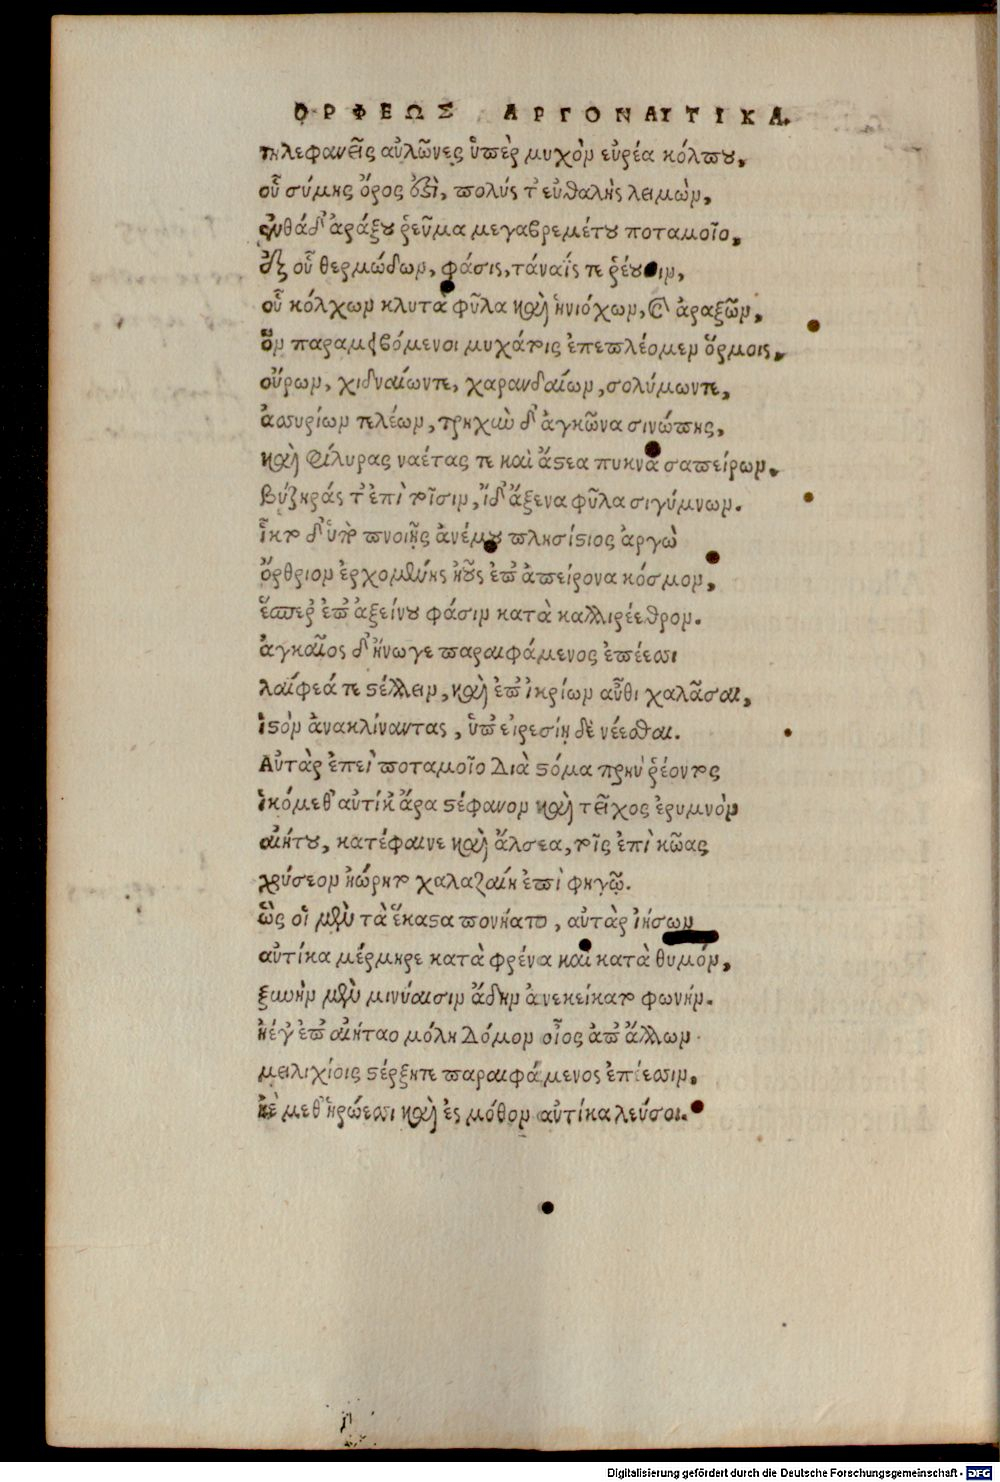 ΟΡΦΕΩΣ ΑΡΓΟΝΑΥΤΙΚΑ.
τηλεφανεῖς αὐλῶνες ὑπὲρ μυχὸν εὐρέα κόλπου,
οὗ σύμης ὄρος ἐστὶ, πολύς τ' εὐθαλὴς λειμὼν,
ἐνθάδ' ἀράξου ῥεῦμα μεγαβρεμέτου ποταμοῖο,
ἐξ οὗ θερμώδων, φάσις, τάναΐς τε ῥέουσιν,
οὗ κόλχων κλυτὰ φῦλα καὶ ἡνιόχων, καὶ ἀραξῶν,
ὃν παραμειβόμενοι μυχάτοις ἐπεπλέομεν ὅρμοις,
οὔρων, χιδναίωντε, χαρανδαίων, σολύμωντε,
ἀσσυρίων τελέων, τρηχὺν δ' ἀγκῶνα σινώπης,
καὶ φίλυρας ναέτας τε καὶ ἄστεα πυκνὰ σαπείρων,
βύζηράς τ' ἐπὶ τοῖσιν, ἴδ' ἄξενα φῦλα σιγύμνων.
ἷκτο δ' ὑπὸ πνοιῇς ἀνέμου πλησίστιος ἀργὼ
ὄρθριον ἐρχομένης ἠοῦς ἐπ' ἀπείρονα κόσμον,
ἕσπερ ἐπ' ἀξείνου φάσιν κατὰ καλλιρέεθρον.
ἀγκαῖος δ' ἤνωγε παραιφάμενος ἐπέεσσι
λαίφεά τε στέλλειν, καὶ ἐπ' ἰκρίων αὖθι χαλᾶσαι,
ἱστὸν ἀνακλίναντας, ὑπ' εἰρεσίῃ δὲ νέεσθαι.
Αὐτὰρ ἐπεὶ ποταμοῖο διὰ στόμα πρηῢ ῥέοντος
ἱκόμεθ' αὐτίκ' ἄρα στέφανον καὶ τεῖχος ἐρυμνὸν
αἰήτου, κατέφαινε καὶ ἄλσεα, τοῖς ἐπὶ κῶας
χρύσεον ἠώρητο χαλαζαίη ἐπὶ φηγῷ.
ὣς οἱ μὲν τὰ ἕκαστα πονήατο, αὐτὰρ ἰήσων
αὐτίκα μέρμηρε κατὰ φρένα καὶ κατὰ θυμόν,
ξυνὴν μὲν μινύαισιν ἄδην ἀνεκείκατο φωνήν.
ἠέγ' ἐπ' αἰήταο μόλῃ δόμον οἶος ἀπ' ἄλλων
μειλιχίοις στέρξῃτε παραιφάμενος ἐπέεσσιν,
ἠὲ μεθ' ἡρώεσσι καὶ ἐς μόθον αὐτίκα λεύσοι.
Digitalisierung gefördert durch die Deutsche Forschungsgemeinschaft - DFG